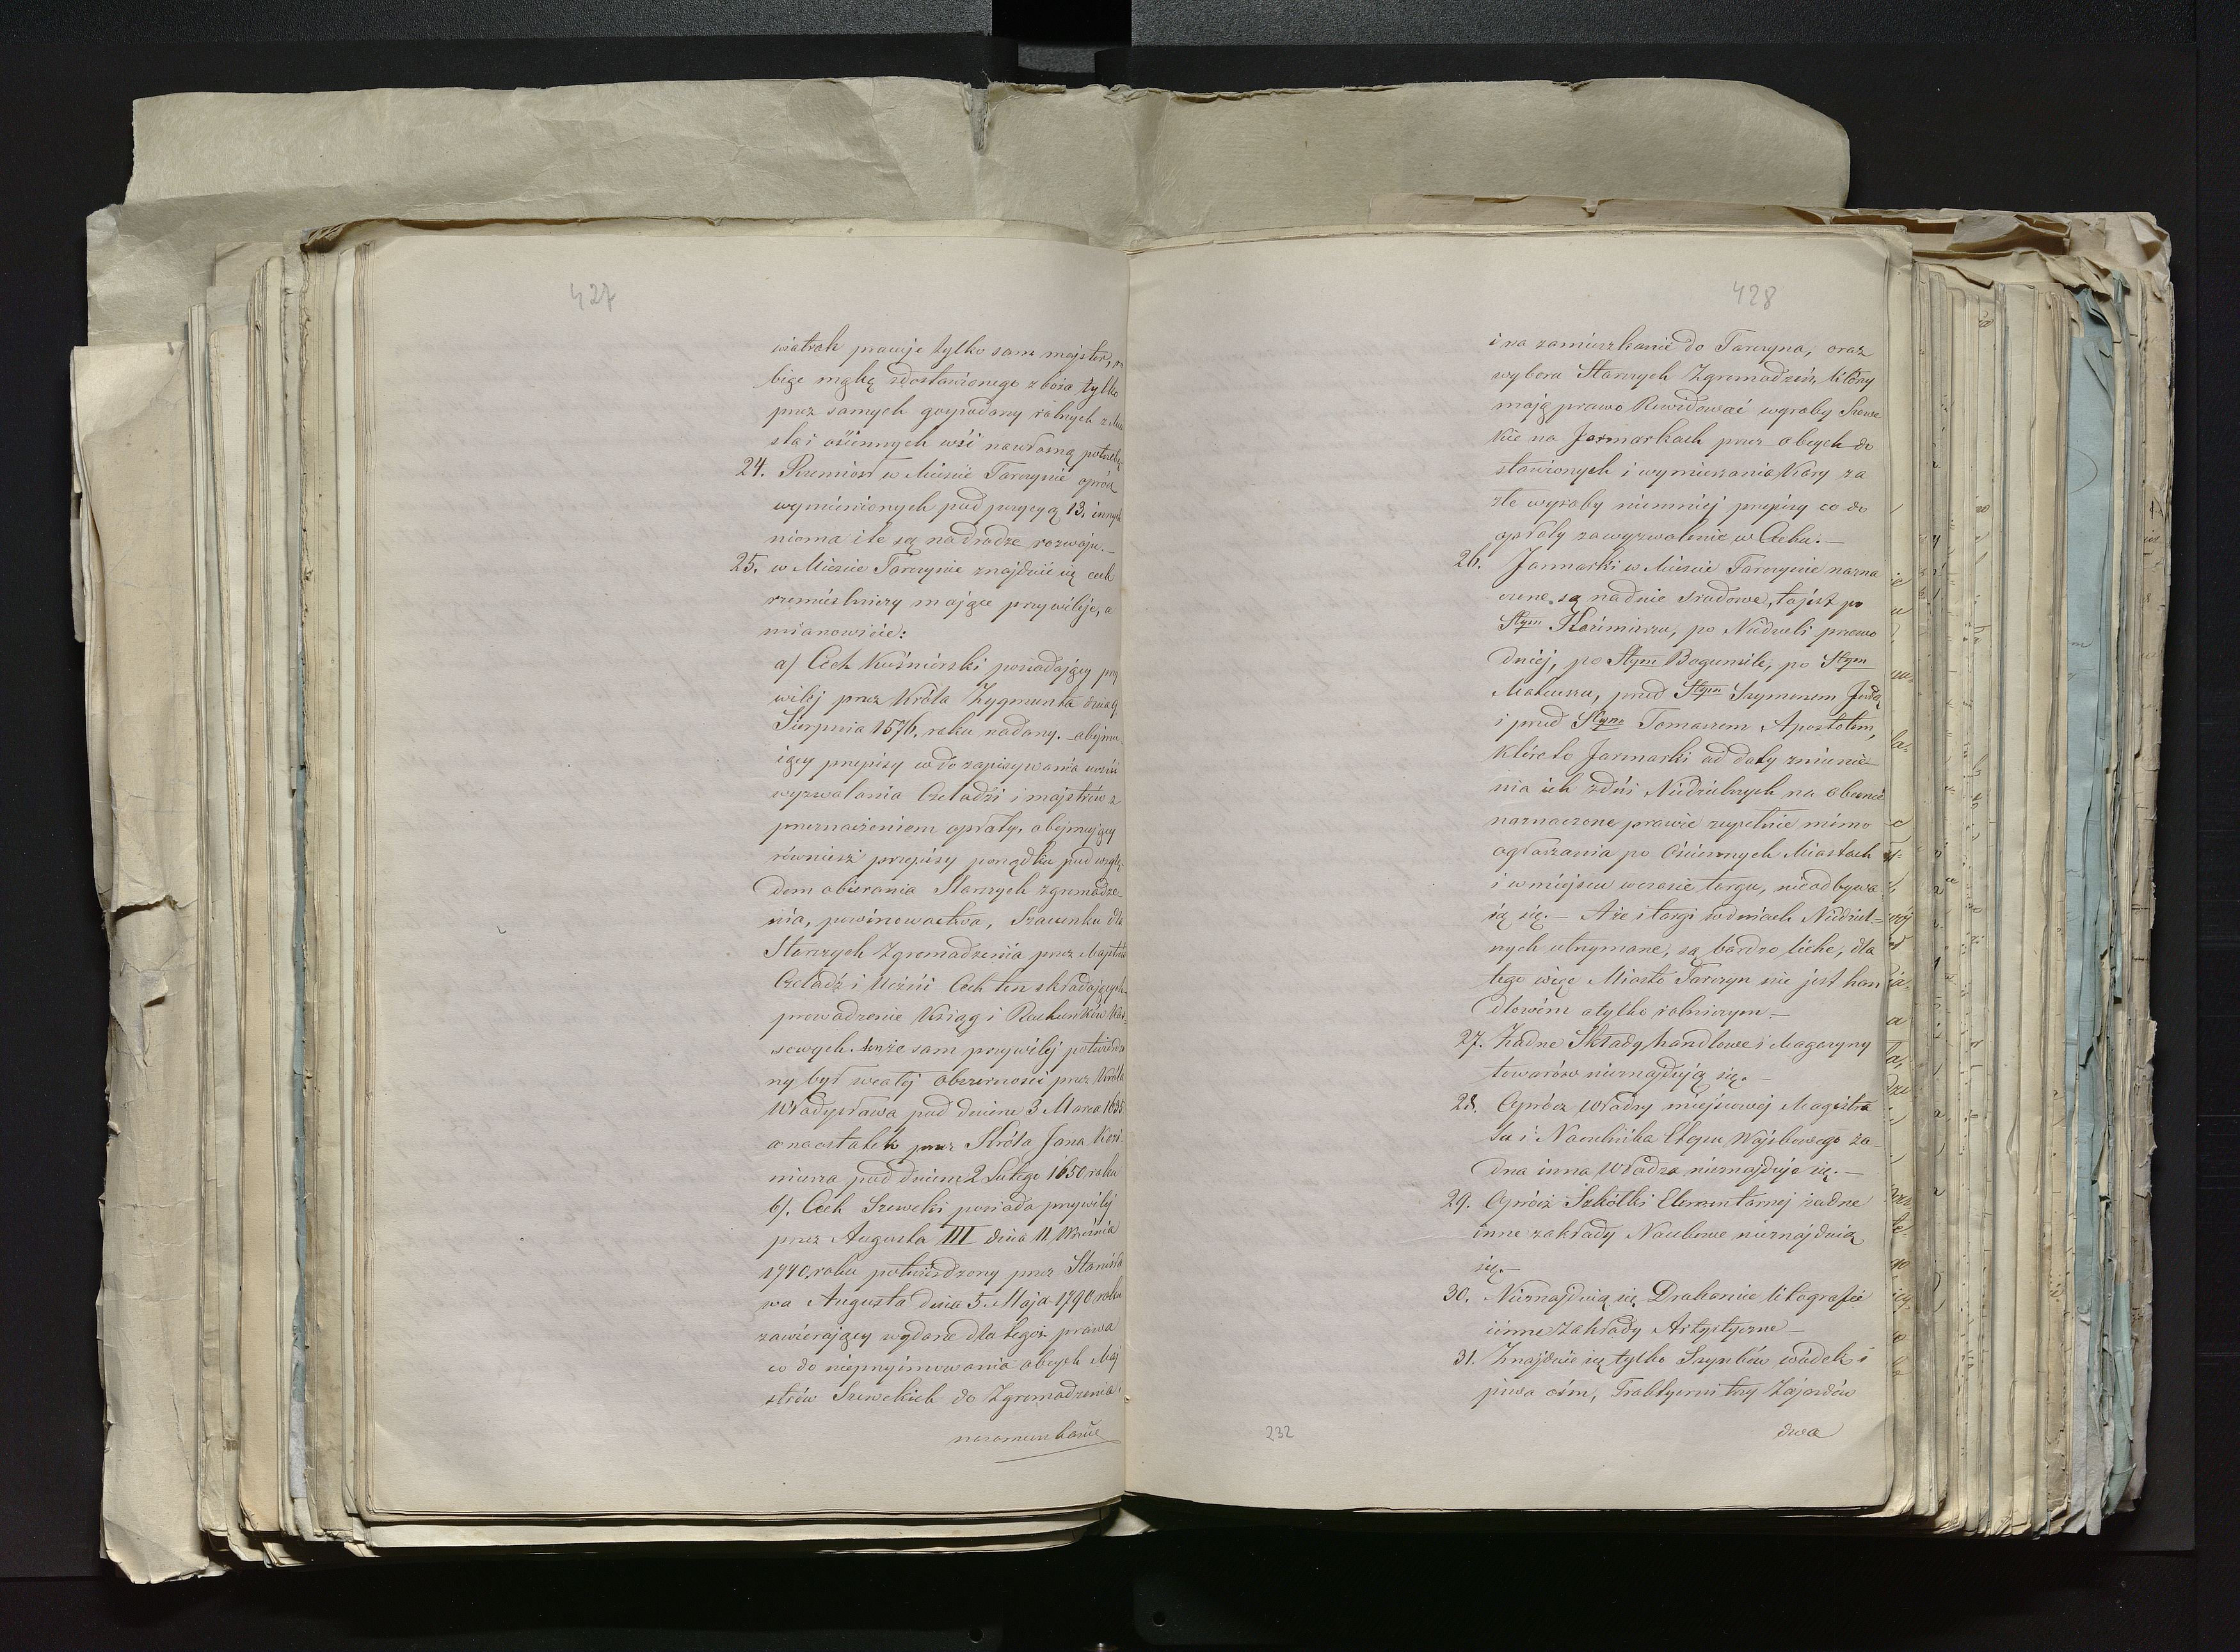 427
wiatrak pracuje tylko sam majster,
biąc mąkę zdostawionego zboża tylko
przez samych gospodarzy rolnych z Mia
sta i ościennych wsi na własną potrzebę
24. Rzemiosł w Mieście Tarczynie oprócz
wymienionych pod pozycyą 13. innych
niema i te są na drodze rozwoju.—
25. w Mieście Tarczynie znajduie się cech
rzemieślniczy mające przywileje, a
mianowicie:
a) Cech Kuśnierski posiadający przy
wilej przez Króla Zygmunta dnia 9
Sierpnia 1576. roku nadany. obejmu
iący przepisy co do zapisywania uczni
wyzwalania Czeladzi i majstrów z
przeznaczeniem opłaty, obejmujący
również przepisy porządku pod wzglę-
dem obierania Starszych zgromadze-
nia, powinowactwa, Szacunku dla
Starszych Zgromadzenia przez Majstrów
Czeladź i Uczni Cech ten składających
prowadzenie Ksiąg i Rachunków Kas-
sowych. tenże sam przywilej potwierdzo
ny był w całej obszerności przez Króla
Władysława pod dniem 3 Marca 1635
a na ostatek przez Króla Jana Kazi-
mierza pod dniem 2 Lutego 1650 roku
b). Cech Szewcki posiada przywilej
przez Augusta III dnia 11 Września
1740 roku potwierdzony przez Stanisła
wa Augusta dnia 5 Maja 1790 roku
zawierający wydane dla tegoż prawa
co do nieprzyimowania obcych Maj
strów Szewckich do Zgromadzenia
na zamieszkanie
428
i na zamieszkanie do Tarczyna, oraz
wyboru Starszych Zgromadzeń, którzy
mają prawo Rewidować wyroby Szewc
kie na Jarmarkach przez obcych do
stawionych i wymierzania Kary za
złe wyroby niemniej przepisy co do
opłaty za wyzwolenie w Cechu.—
26. Jarmarki w Mieście Tarczynie nazna
czone są na dnie Srodowe, to jest po
Stym Kazimierzu, po Niedzieli przewo
dniej, po Stym Bogumile, po Stym
Mateuszu, przed Stym Szymonem Judą
i przed Stym Tomaszem Apostołem,
które to Jarmarki od daty zmienie-
nia ich z dni Niedzielnych na obecnie
naznaczone prawie zupełnie mimo
ogłaszania po Ościennych Miastach
i w miejscu w czasie targu, nie odbywa
ią się.— A że i targi w dniach Niedziel-
nych utrzymane, są bardzo liche, dla
tego więc Miasto Tarczyn nie jest han
dlowém a tylko rolniczym—
27. Żadne Składy handlowe i Magazyny
towarów nieznajdują się.—
28. Oprócz Władzy miejscowej Magistra
tu i Naczelnika Etapu Wojskowego ża-
dna inna Władza nieznajduje się.—
29. Oprócz Szkółki Elementarnej żadne
inne zakłady Naukowe nieznajduią
się.—
30. Nieznajduią się, Drukarnie litografie
i inne Zakłady Artystyczne—
31. Znajduie się tylko Szynków wódek i
piwa ośm, Traktyerni trzy Zajazdów
dwa
232